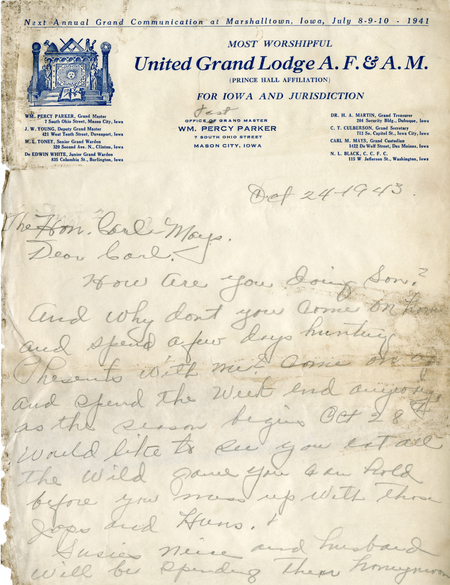 Next Annual Grand Communication at Marshalltown, Iowa, July 8-9-10 - 1941
MOST WORSHIPFUL
United Grand Lodge A. F. & A. M.
(PRINCE HALL AFFILIATION)
FOR IOWA AND JURISDICTION
WM. PERCY PARKER, Grand Master
7 South Ohio Street, Mason City, Iowa
J. W. YOUNG, Deputy Grand Master
421 West Tenth Street, Davenport, Iowa
M. L. TONEY, Senior Grand Warden
320 Second Ave. N., Clinton, Iowa
De EDWIN WHITE, Junior Grand Warden
835 Columbia St., Burlington, Iowa
Past
OFFICE OF GRAND MASTER
WM. PERCY PARKER
7 SOUTH OHIO STREET
MASON CITY, IOWA
DR. H. A. MARTIN, Grand Treasurer
204 Security Bldg., Dubuque, Iowa
C. T. CULBERSON, Grand Secretary
713 So. Capitol St., Iowa City, Iowa
CARL M. MAYS, Grand Custodian
1422 De Wolf Street, Des Moines, Iowa
N. L. BLACK, C. C. F. C.
115 W Jefferson St., Washington, Iowa
Oct 24-1943
The Hon. Carl Mays.
Dear Carl.
How Are you Doing Son?
And Why dont you Come on
and spend a few days hunting
Phesents With me? Come on
and spend the Week end anyway
as the season begins Oct 28th
Would like to see you eat all
the Wild game you can hold
before you mess up With those
Japs and Huns.
Susies Neice and husband
Will be spending their honeymoon